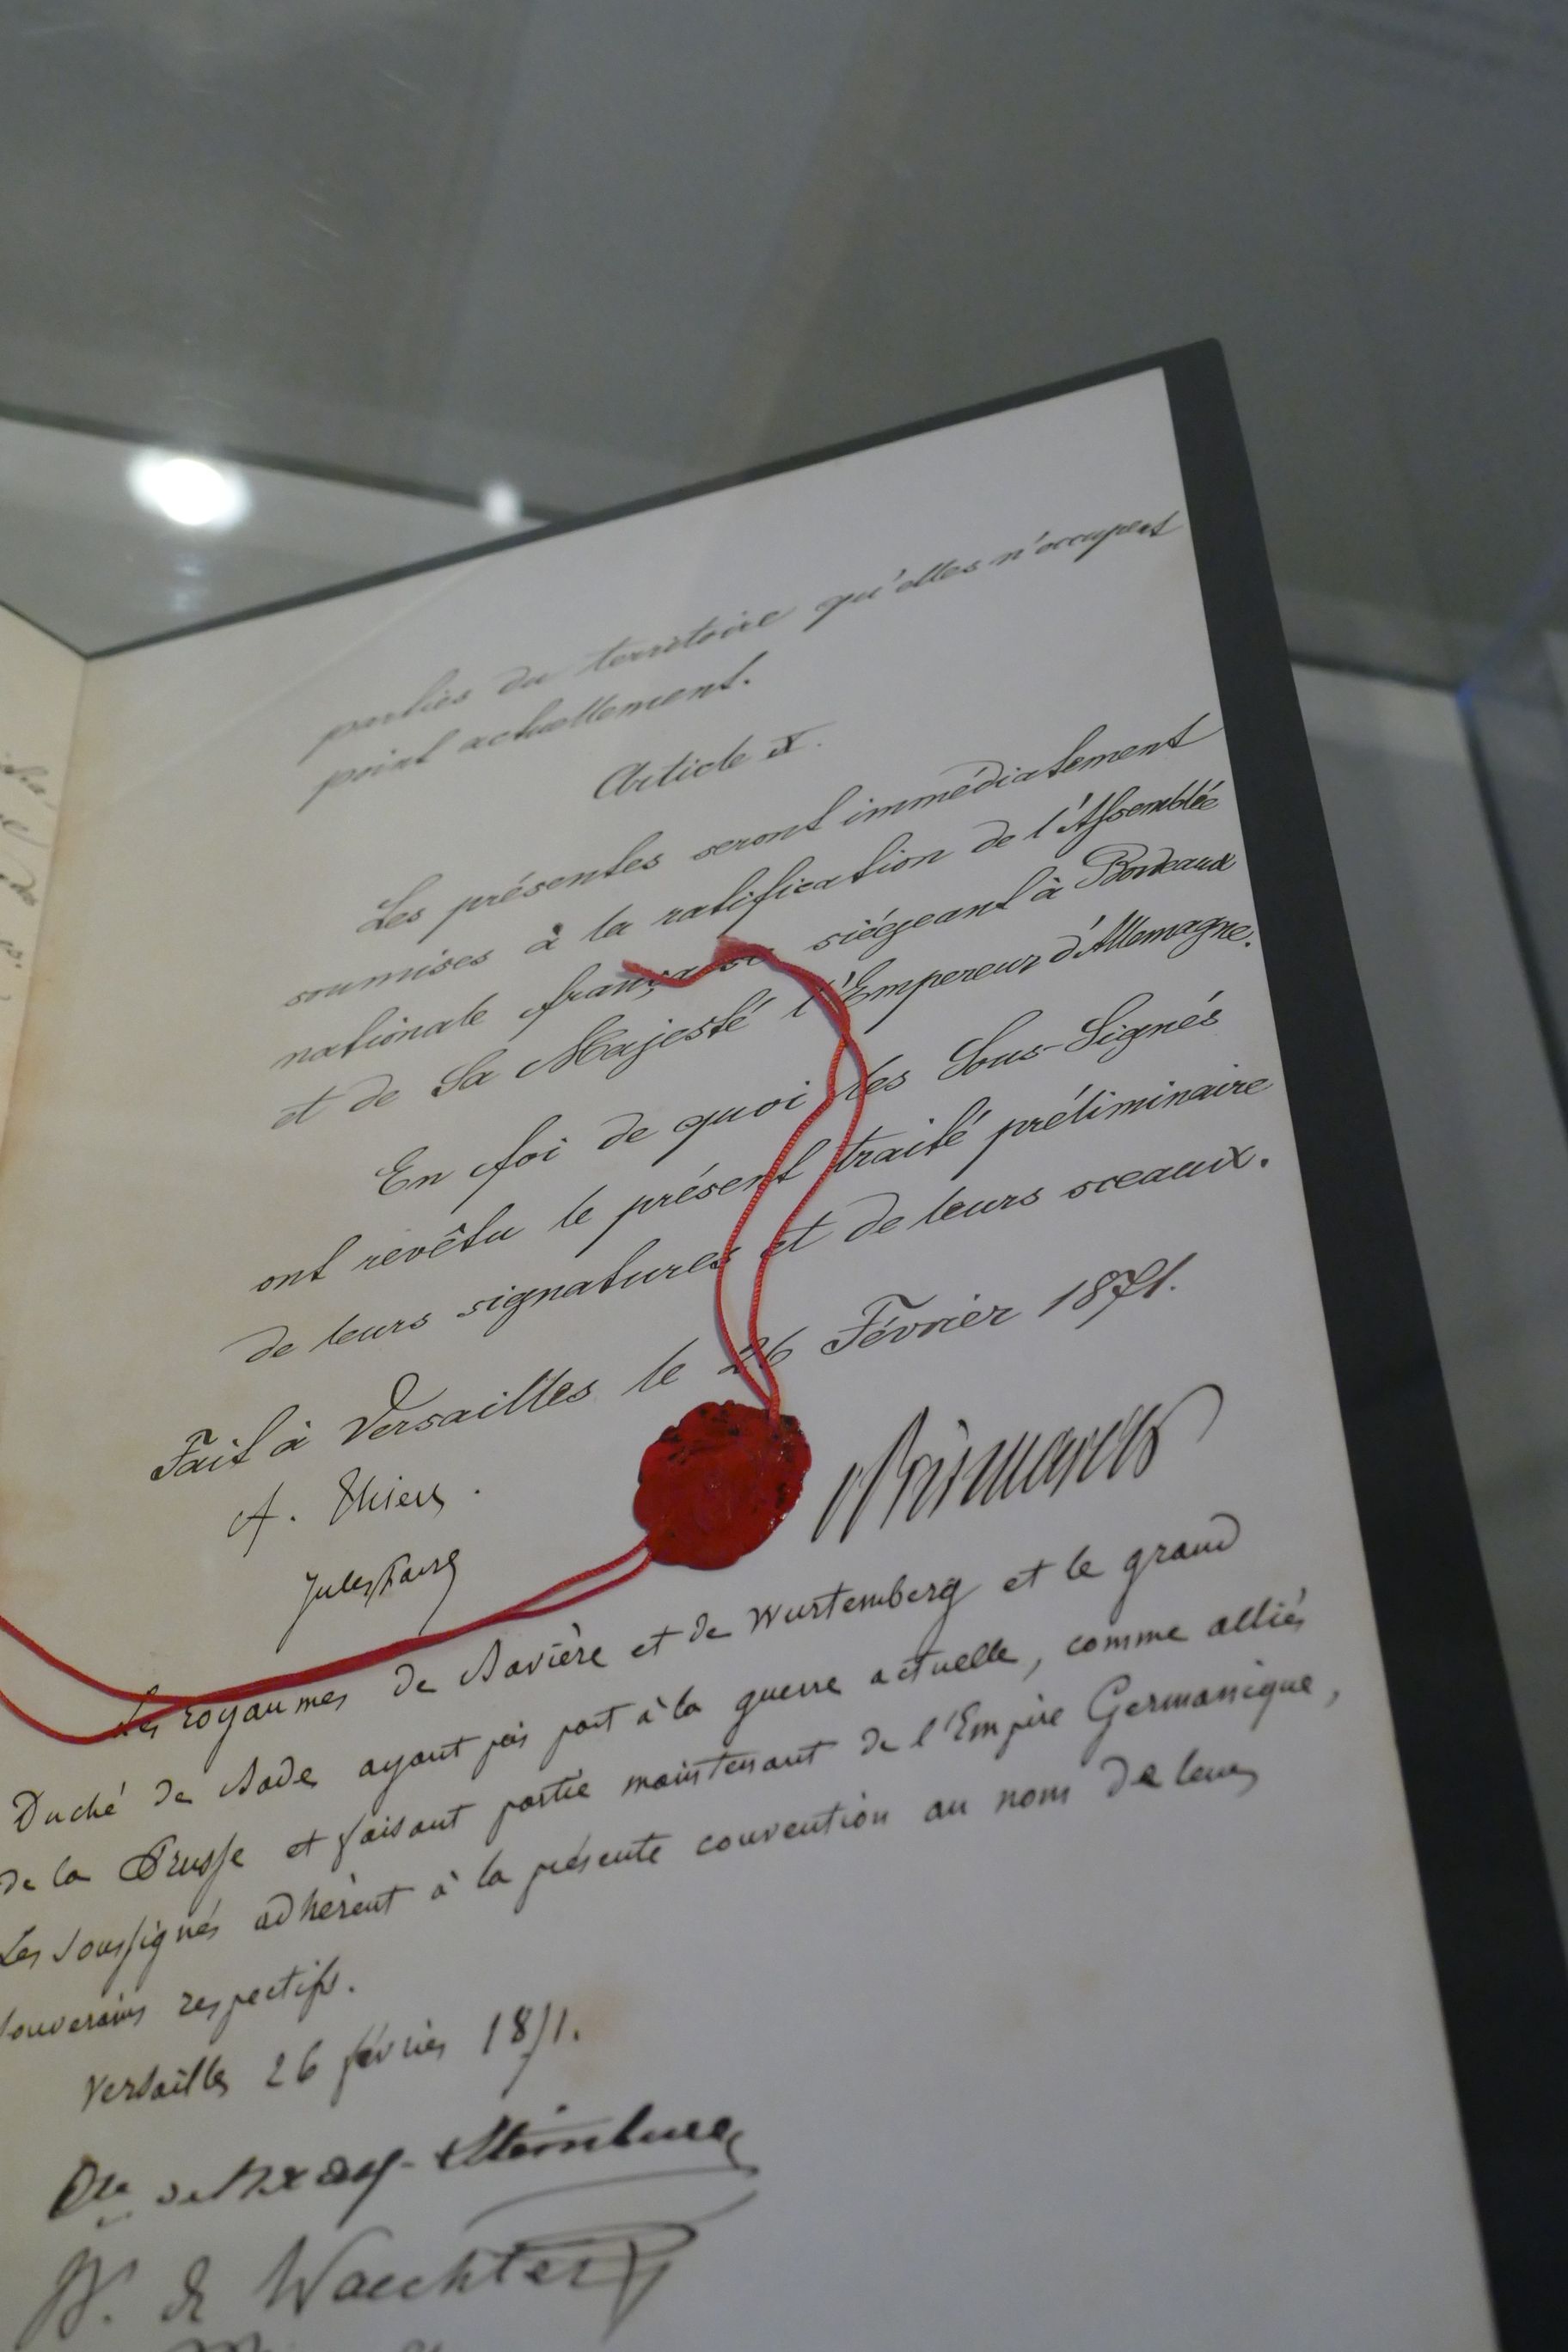 parties du territoire qu'elles n'occupent
point actuellement.
Article X.
Les présentes seront immédiatement
soumises à la ratification de l'Assemblée
nationale française siégeant à Bordeaux
et de Sa Majesté l'Empereur d'Allemagne.
En foi de quoi les Sous-Signés
ont revêtu le présent traité préliminaire
de leurs signatures et de leurs sceaux.
Fait à Versailles le 26 Février 1871.
A. Thiers.
v Bismarck
Jules Favre
Les royaumes de Bavière et de Wurtemberg et le grand
Duché de Bade ayant pris part à la guerre actuelle, comme alliés
de la Prusse et faisant partie maintenant de l'Empire Germanique,
Les soussignés adhèrent à la présente convention au nom de leurs
souverains respectifs.
Versailles 26 février 1871.
Cte de Bray-Steinburg
de Waechter